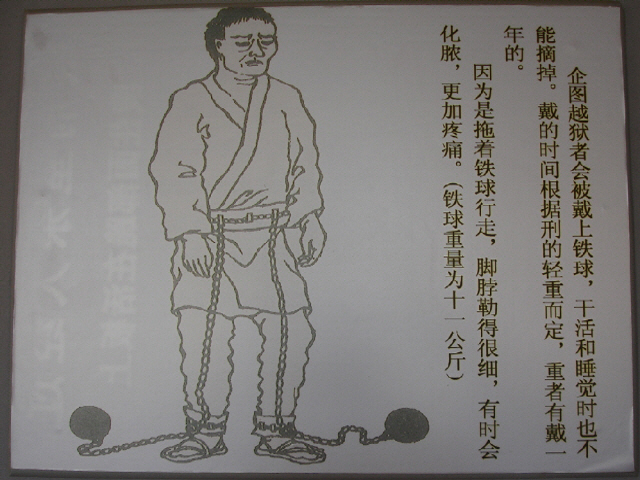 企图越狱者会被戴上铁球，干活和睡觉时也不
能摘掉。戴的时间根据刑的轻重而定，重者有戴一
年的。
因为是拖着铁球行走，脚脖勒得很细，有时会
化脓，更加疼痛。（铁球重量为十一公斤）